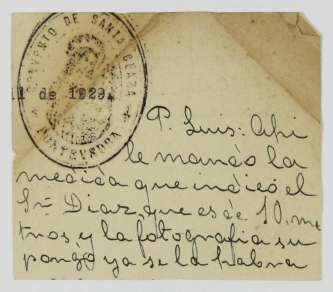 CONVENTO DE SANTA CLARA
PONTEVEDRA
il de 1929.
P. Luis: Ahi
le mando la
medida que indicó el
Sr Diaz, que es de 10. me
tros, y la fotografia su
pongo ya se la habra